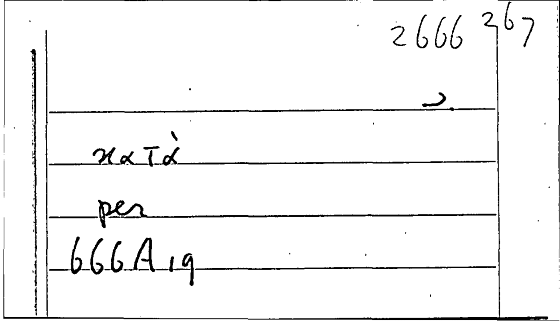 2666 267
2.
κατὰ
per
666A 19